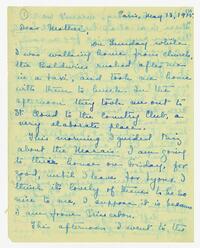 1
Paris, May 13, 19
Dear Mother,
On Sunday while
I was walking home from church,
the Baldwins rushed after me
in a taxi, and took me home
with them to lunch. In the
afternoon they took me out to
St. Cloud to the Country Club, a
very elaborate place.
This morning I guided Ring
about the Marais. I am going
to their house on Friday, for
good, until I leave for Lyons. I
think its lovely of them to be so
nice to me, I suppose it is because
I am from Princeton.
This afternoon I went to the